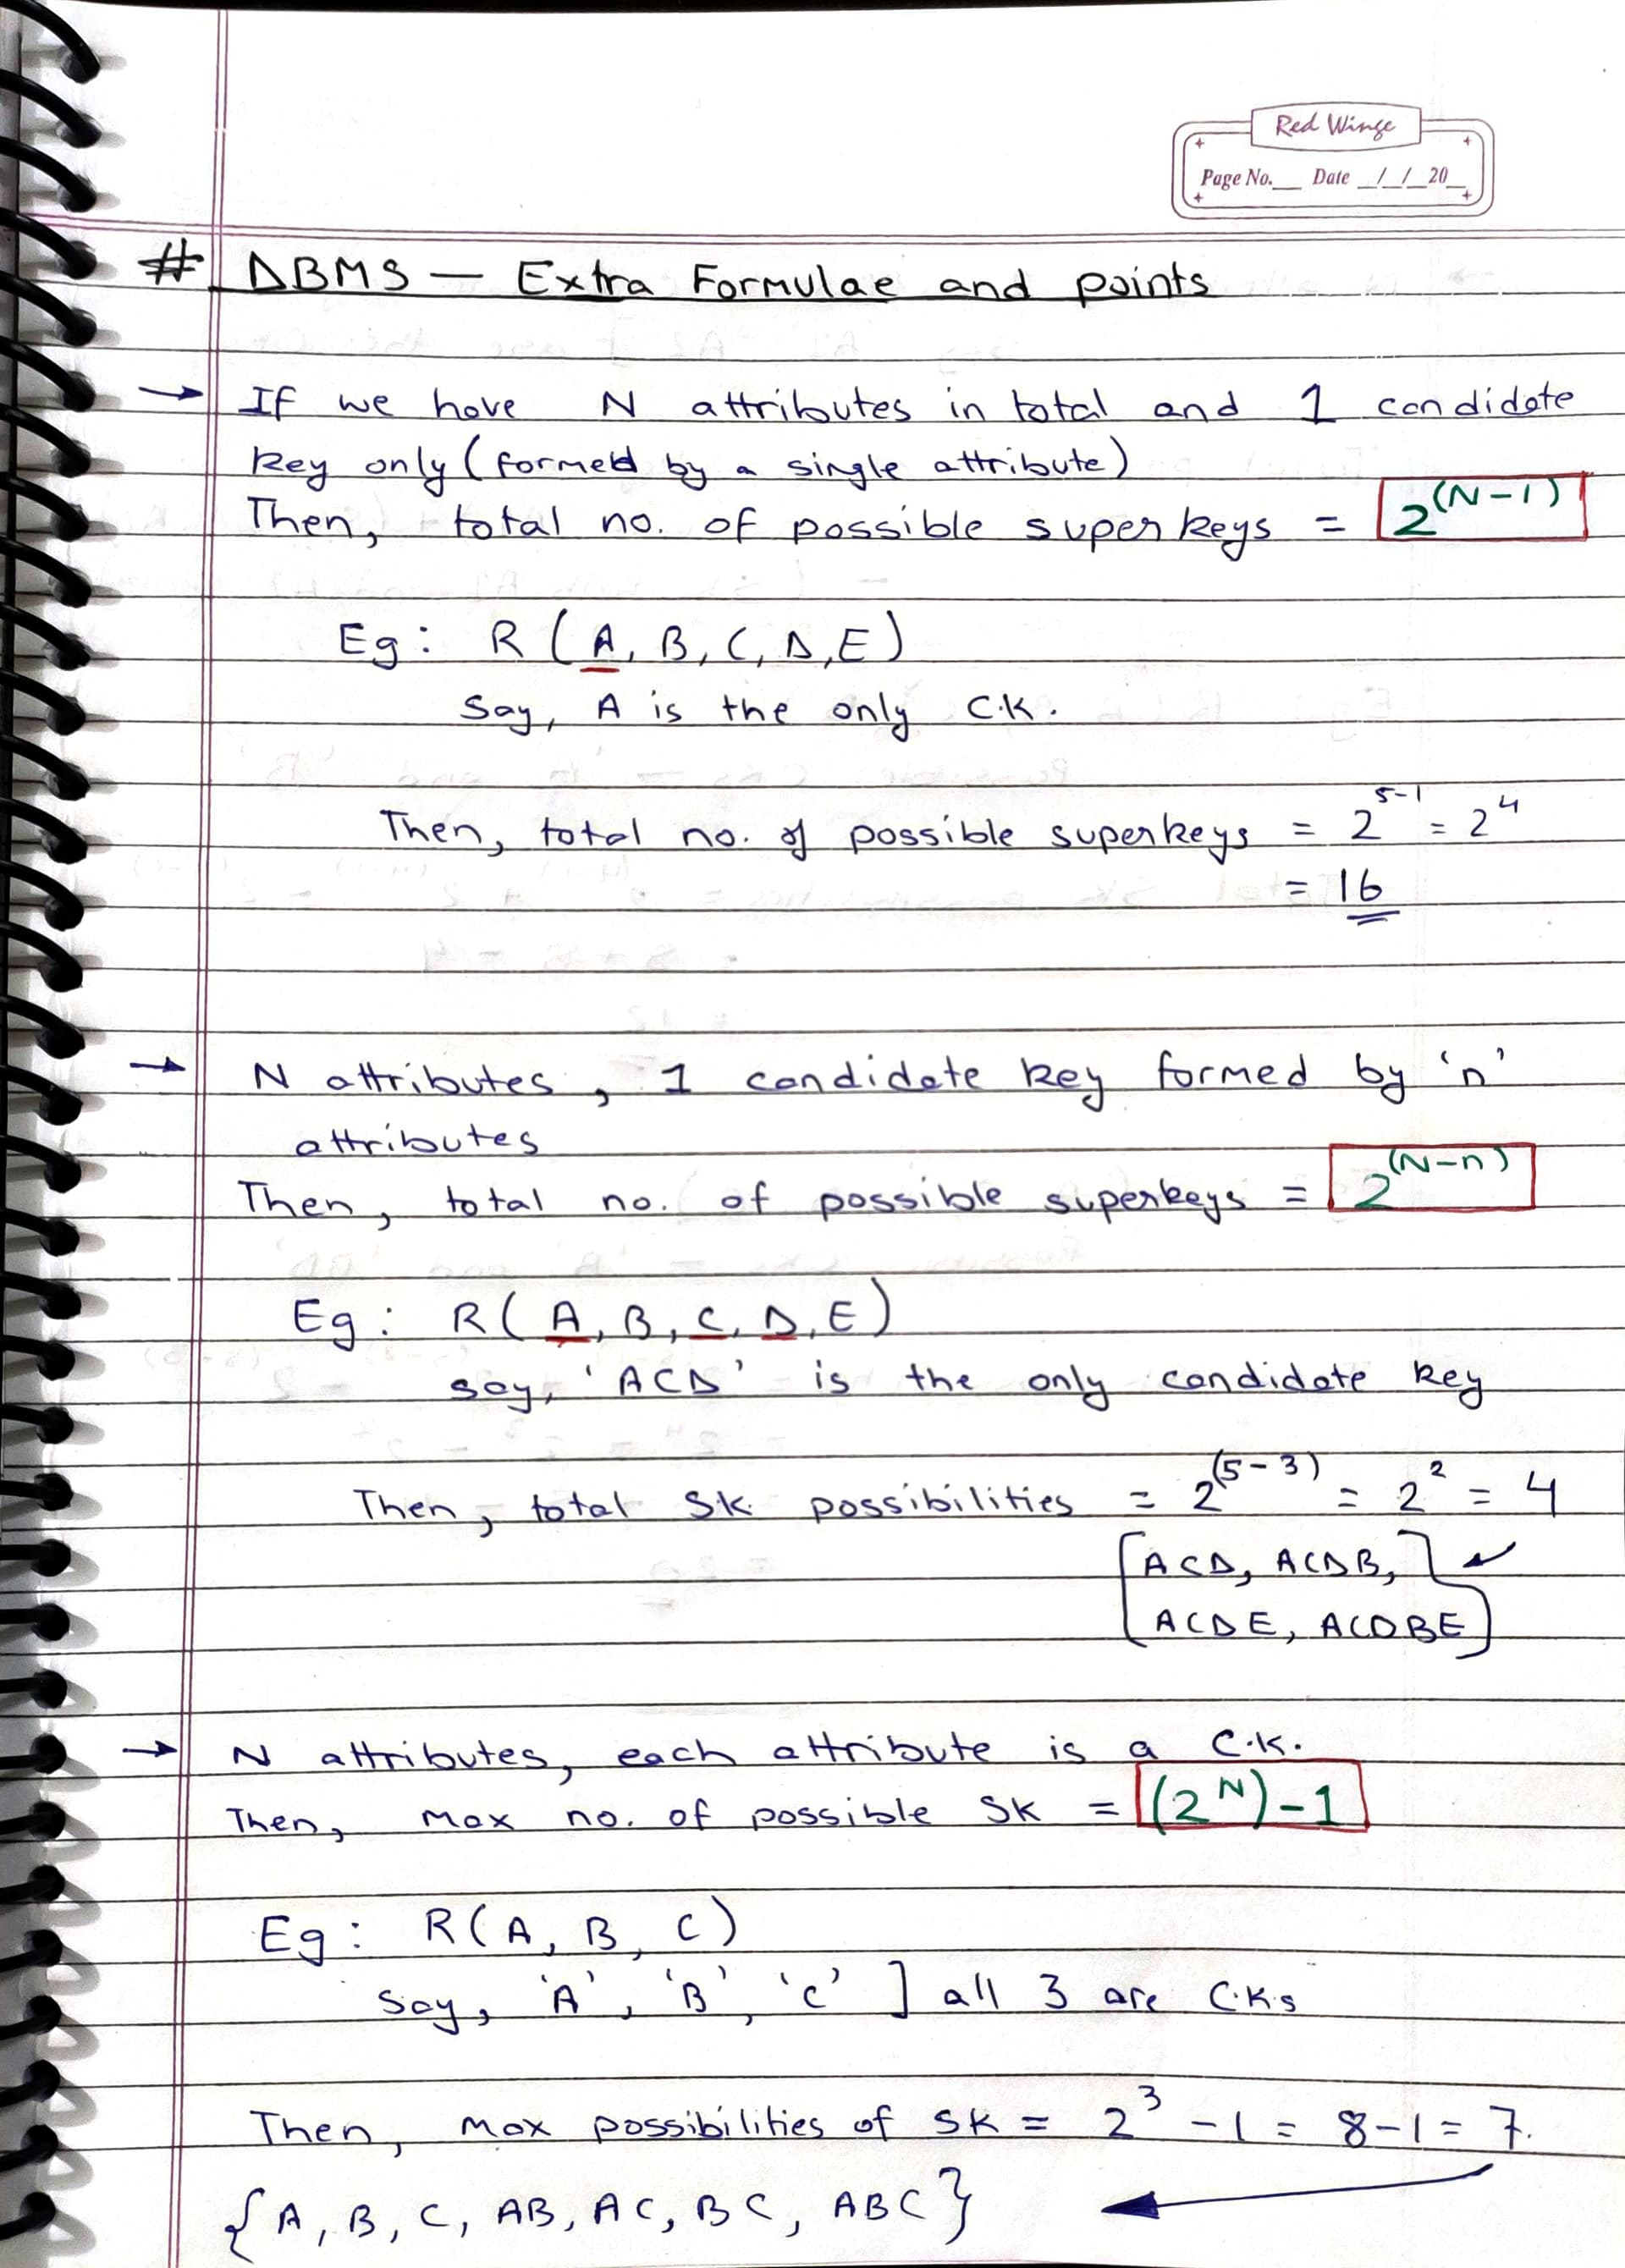 Red Winge
Page No.__ Date _/_/_20_
# DBMS — Extra Formulae and points
→ If we have N attributes in total and 1 candidate
key only (formed by a single attribute)
Then, total no. of possible super keys = 2^(N-1)
Eg: R (A, B, C, D, E)
Say, A is the only C.K.
Then, total no. of possible superkeys = 2^5-1 = 2^4
= 16
→ N attributes, 1 candidate key formed by 'n'
attributes
Then, total no. of possible superkeys = 2^(N-n)
Eg: R(A, B, C, D, E)
say, 'ACD' is the only candidate key
Then, total SK possibilities = 2^(5-3) = 2^2 = 4
[ACD, ACDB,
ACDE, ACDBE]
→ N attributes, each attribute is a C.K.
Then, Max no. of possible SK = (2^N)-1
Eg: R(A, B, C)
Say, 'A', 'B', 'C' ] all 3 are C.K.s
Then, Max possibilities of SK = 2^3 - 1 = 8-1 = 7.
{A, B, C, AB, AC, BC, ABC}